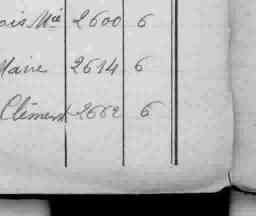 ois Mie 2600 6
Maire 2614 6
Clément 2662 6